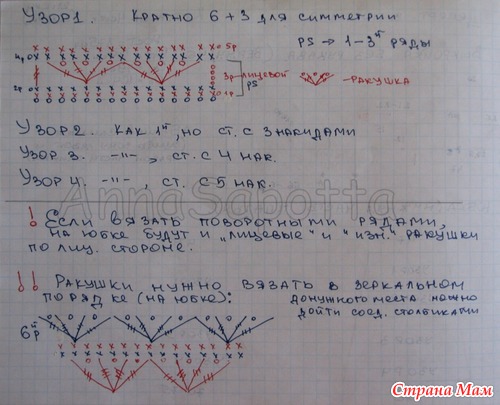 Узор 1. Кратно 6 + 3 для симметрии
PS → 1–3й ряды
5р
4р
3р – лицевой
PS
– ракушка
2р
1р
Узор 2. Как 1й, но ст. с 3 накидами
Узор 3. –"–, ст. с 4 нак.
Узор 4. –"–, ст. с 5 нак.
AnnaSabotta
! Если вязать поворотными рядами,
на юбке будут и "лицевые" и "изн." ракушки
по лиц. стороне.
!! Ракушки нужно вязать в зеркальном
порядке (на юбке):
до нужного места можно
дойти соед. столбиками
6й р
Страна Мам